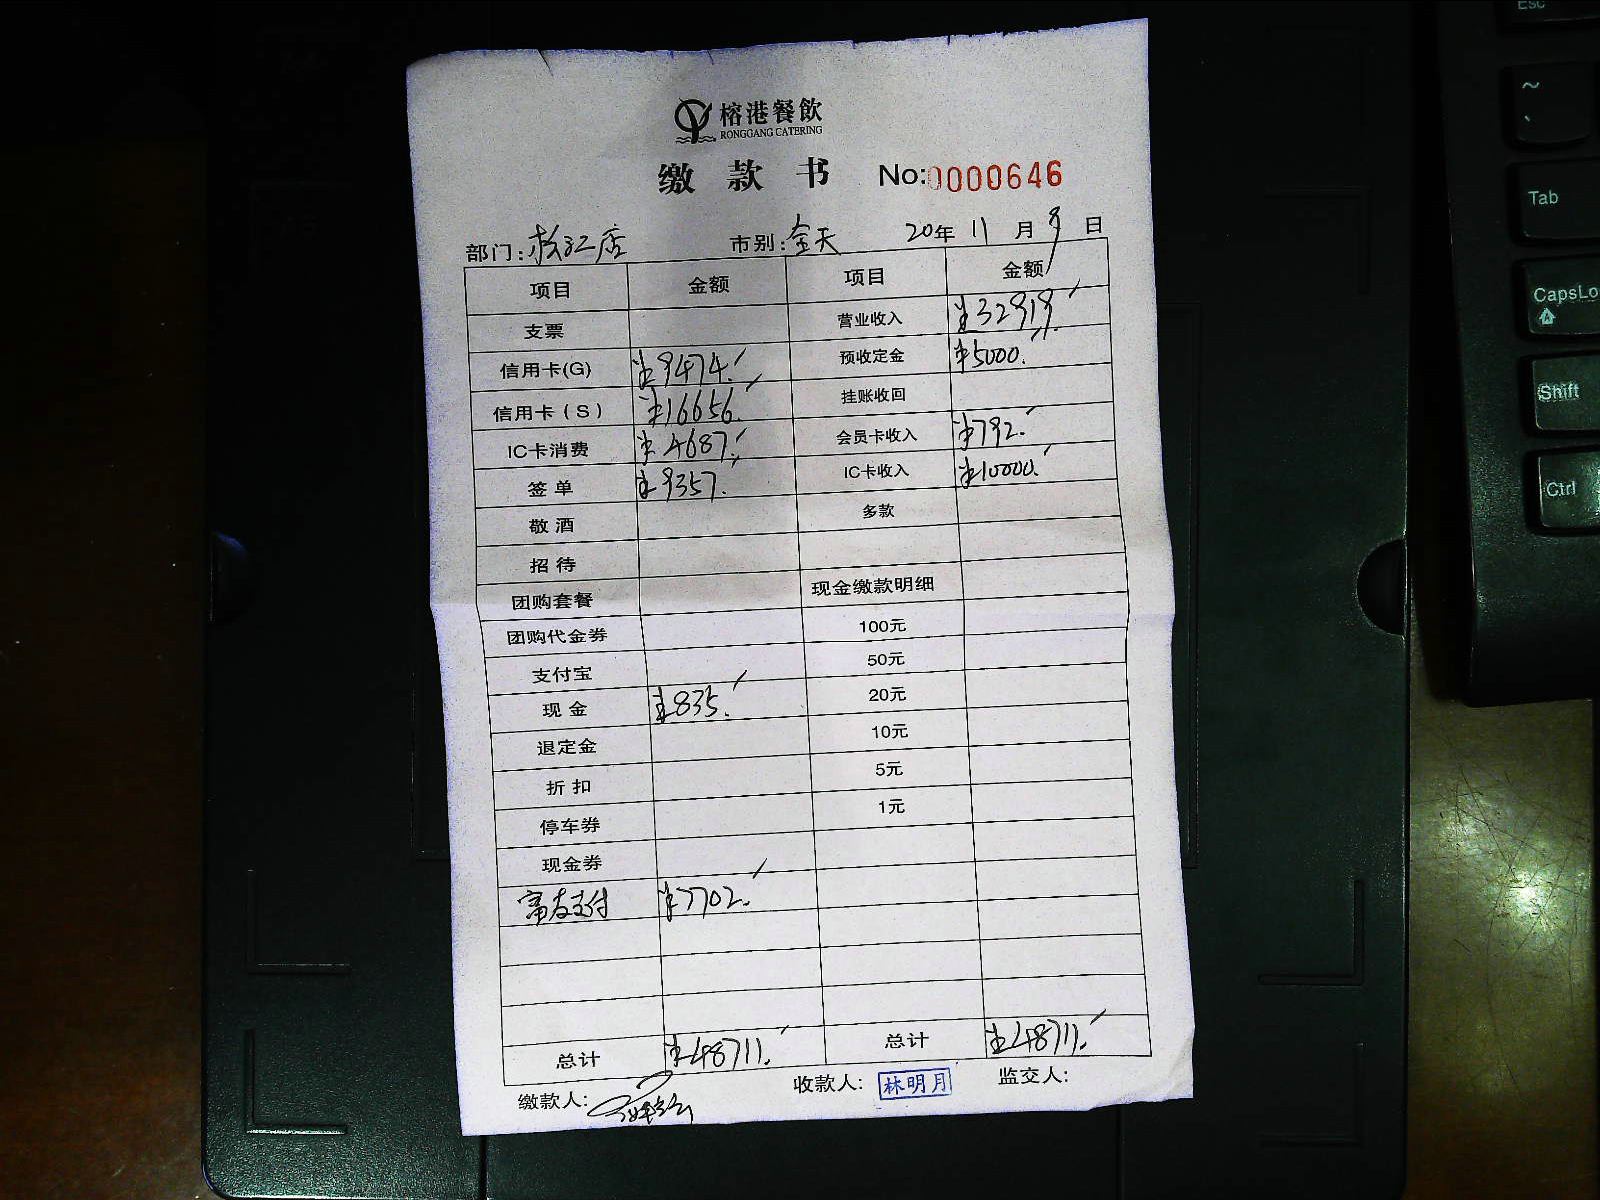 榕港餐飲
RONGGANG CATERING
缴款书 No:0000646
部门:松江店 市别:全天 20年11月9日
项目 金额 项目 金额
支票 营业收入 ¥32919.
信用卡(G) ¥9474. 预收定金 ¥5000.
信用卡(S) ¥16656. 挂账收回
IC卡消费 ¥4687. 会员卡收入 ¥792.
签单 ¥9357. IC卡收入 ¥10000.
敬酒 多款
招待
团购套餐 现金缴款明细
团购代金券 100元
支付宝 50元
现金 ¥835. 20元
退定金 10元
折扣 5元
停车券 1元
现金券
富友支付 ¥7702.
总计 ¥48711. 总计 ¥48711.
缴款人: 收款人: 林明月 监交人:
Esc
~
Tab
CapsLo
Shift
Ctrl